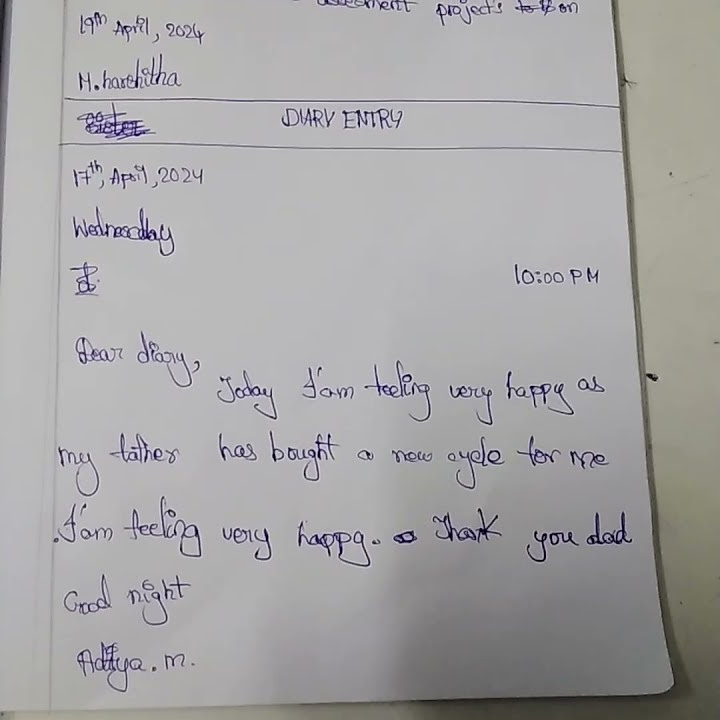 assesment projects on
19th April, 2024
M. harshitha
DIARY ENTRY
17th, April, 2024
Wednesday
10:00 PM
Dear diary,
Today I'am feeling very happy as
my father has bought a new cycle for me
.I'am feeling very happy. Thank you dad
Good night
Aditya. m.